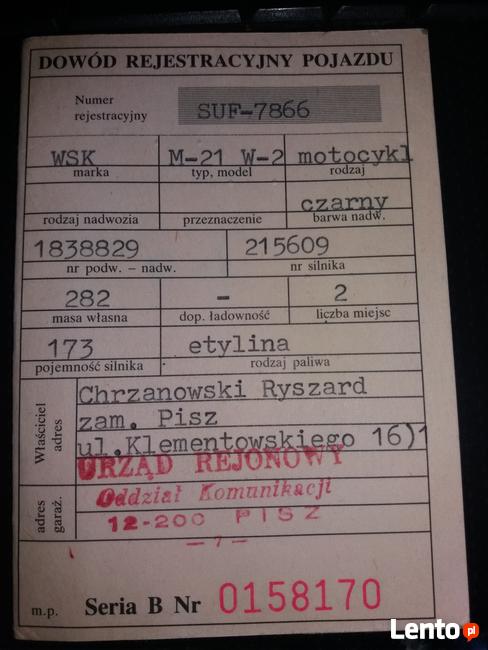 DOWÓD REJESTRACYJNY POJAZDU
Numer rejestracyjny SUF-7866
WSK M-21 W-2 motocykl
marka typ, model rodzaj
czarny
rodzaj nadwozia przeznaczenie barwa nadw.
1838829 215609
nr podw. – nadw. nr silnika
282 – 2
masa własna dop. ładowność liczba miejsc
173 etylina
pojemność silnika rodzaj paliwa
Właściciel adres
Chrzanowski Ryszard
zam. Pisz
ul.Klementowskiego 16)1
URZĄD REJONOWY
Oddział Komunikacji
12-200 PISZ
— 7 —
adres garaż.
m.p. Seria B Nr 0158170
Lento.pl